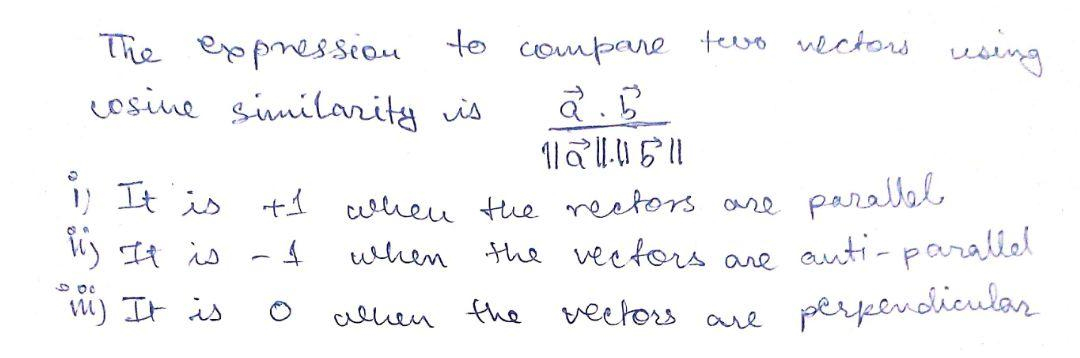 The expression to compare two vectors using
cosine similarity is $\frac{\vec{a} . \vec{b}}{||\vec{a}||.||\vec{b}||}$
i) It is +1 when the vectors are parallel
ii) It is -1 when the vectors are anti-parallel
iii) It is 0 when the vectors are perpendicular